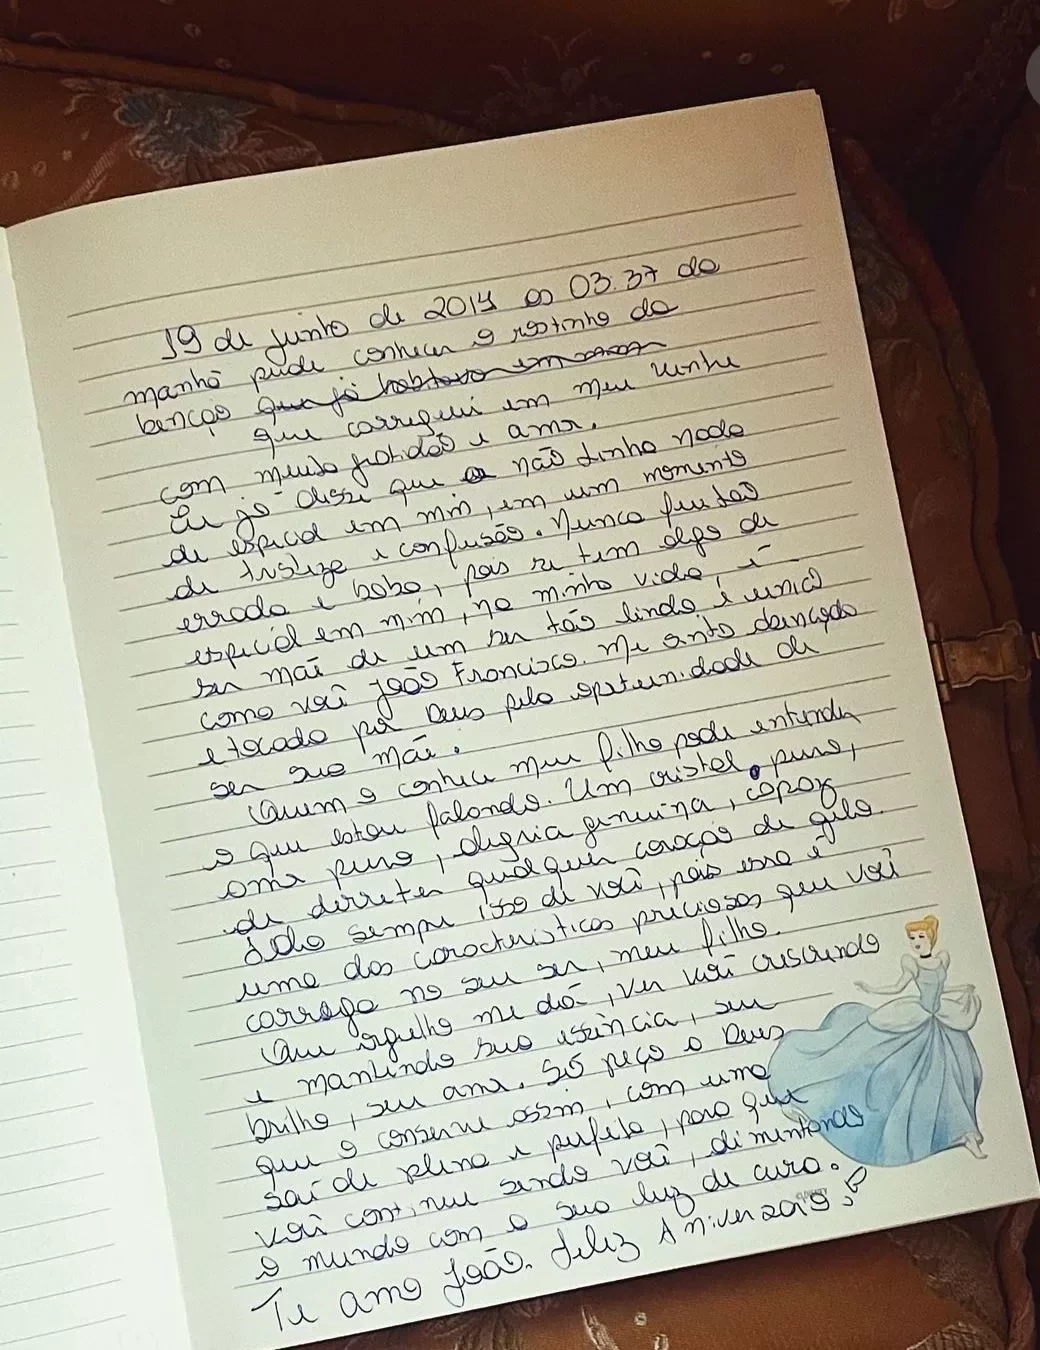 19 de junho de 2014 as 03:37 da
manhã pude conhecer o rostinho da
benção que já habitava em
que carreguei em meu ventre
com muita gratidão e amor.
Eu já disse que não tinha nada
de especial em mim, em um momento
de tristeza e confusão. Nunca fui tão
errada e boba, pois se tem algo de
especial em mim, na minha vida, é
ser mãe de um ser tão lindo e único
como você João Francisco. Me sinto abençoada
e tocada por Deus pela oportunidade de
ser sua mãe.
Quem o conhece meu filho pode entender
o que estou falando. Um cristal puro,
amor puro, alegria genuína, capaz
de derreter qualquer coração de gelo.
Falo sempre isso de você, pois essa é
uma das características preciosas que você
carrega no seu ser, meu filho.
Que orgulho me dá, ver você crescendo
e mantendo sua essência, seu
brilho, seu amor. Só peço a Deus
que o conserve assim, com uma
saúde plena e perfeita, para que
você continue sendo você, alimentando
o mundo com a sua luz de cura.
Te amo João. Feliz Aniver 2019